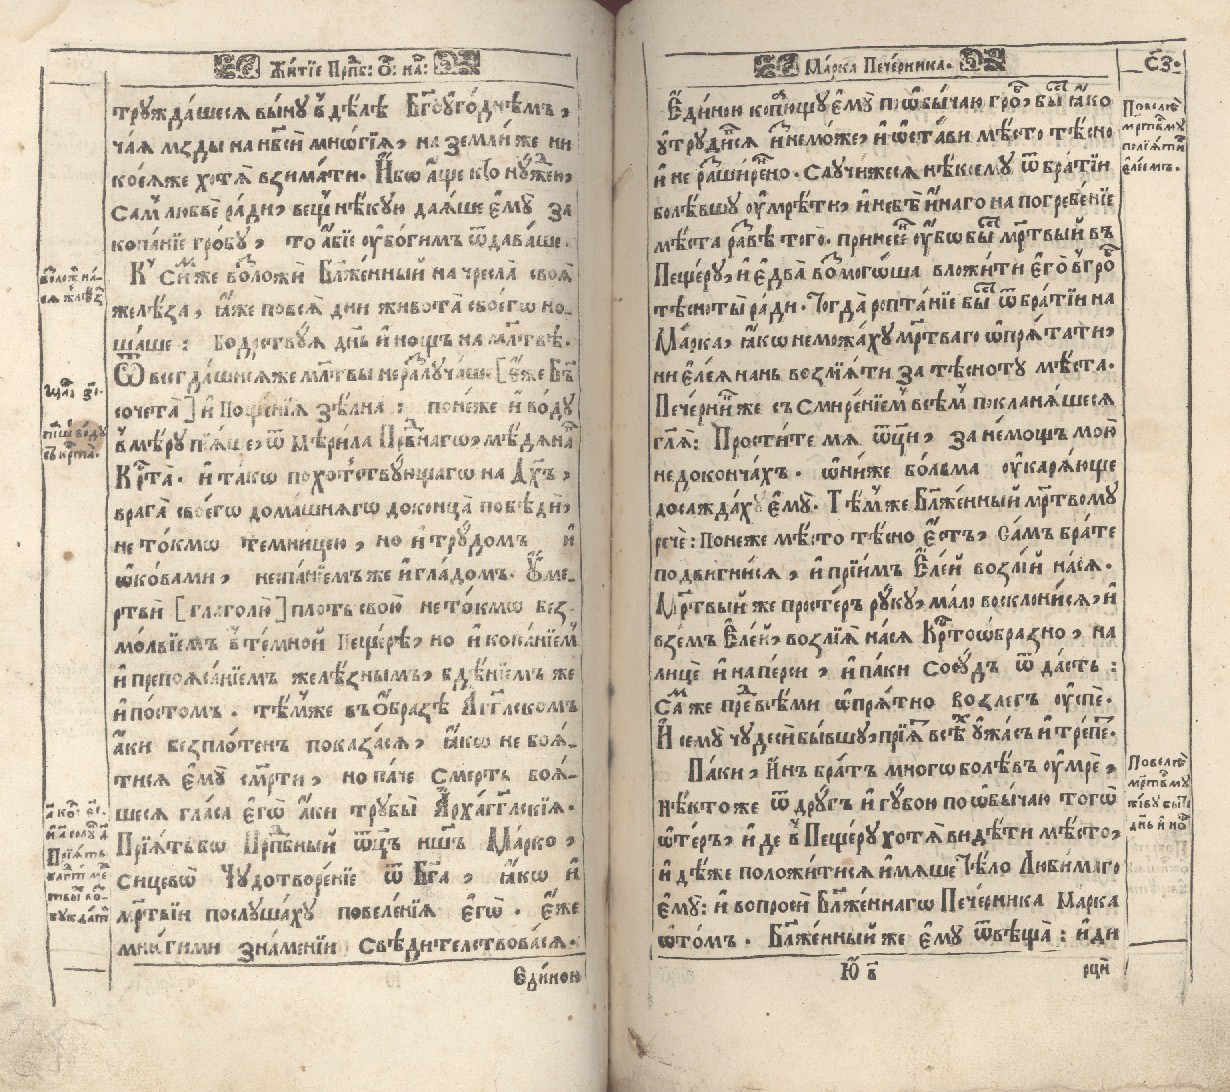 Жи́тїе Прпⷣб: Ѻ҆ц҃ъ на́:
трꙋжда́шесѧ вы́нꙋ в̾ дѣ́лѣ Бг҃оꙋго́днѣмъ,
ча́ѧ мзды на нб҃сѝ мнѡ́гїѧ, на землѝ же ни
коеѧ́же хотѧ̀ взима́ти. И҆́бѡ а҆́ще кто̀ нꙋ́жденъ,
Самъ любвѐ ра́ди, ве́щъ нѣ́кꙋю даѧ́ше є҆мꙋ̀ за
копа́нїе гро́бꙋ, то а҆́бїе ᲂу҆бо́гимъ ѿдава́ше.
Къ Си́мже возложѝ Бл҃же́нный на чре́сла своѧ̀
желѣ́за, ꙗ҆́же повсѧ̀ дни живота̀ своегѡ̀ но-
ша́ше: бо́дрствꙋѧ дн҃ь и҆ нощъ на мл҃твѣ.
Ѿ всегда́шнїѧже мл҃твы неразлꙋча́ше [є҆́же Бг҃ъ
сочета̀] и҆ Поще́нїѧ ѕѣ́лна: поне́же и҆ во́дꙋ
в̾ мѣ́рꙋ пїѧ́ше, ѿ мѣ́рила Прпⷣбнагѡ, мѣ́дѧна
Крⷭ҇та̀. и҆ та́кѡ похо́тствꙋющагѡ на Дх҃ъ,
врага̀ своегѡ̀ дома́шнѧгѡ доконца̀ побѣдѝ,
не то́кмѡ темни́цею, но и҆ трꙋдо́мъ и҆
ѡ҆ко́вами, неспа́нїемъ же и҆ гла́домъ. Оу҆ме-
ртвѝ [глаго́лю] пло́ть свою̀ не то́кмѡ без-
мо́лвїемъ в̾ те́мной Пеще́рѣ, но и҆ копа́нїемъ
и҆ препоѧса́нїемъ желѣ́знымъ, бдѣ́нїемъ же
и҆ по́стомъ. тѣ́мже въ Ѻ҆́бразѣ А҆́гг҃лскомъ
а҆́ки безпло́тенъ показа́сѧ, ꙗ҆́кѡ не боѧ́-
тисѧ є҆мꙋ̀ сме́рти, но па́че Сме́рть боѧ́-
шесѧ гла́са є҆гѡ̀ а҆́ки трꙋбы̀ А҆рха́гг҃лскїѧ.
Прїѧ́тъ бѡ Прпⷣбный ѻ҆ц҃ъ нш҃ъ Ма́рко,
сицевѡ̀ Чꙋдотворе́нїе ѿ Бг҃а, ꙗ҆́кѡ и҆
мр҃твїи послꙋ́шахꙋ повелѣ́нїѧ є҆гѡ̀. є҆́же
мно́гими зна́менїи Свѣдителствова́сѧ.
Еди́ною
возлож̾ на-
сѧ желѣз̾
ѱал: ѕ҃і.
пїше во́дꙋ
съ крⷭ҇та̀.
Ма́рка Пече́рника.
С҃з.
Е҆ди́ною копа́ющꙋ є҆мꙋ̀ по ѡ҆бы́чаю гро́бъ, бы́сть ꙗ҆́ко
ᲂу҆трꙋди́сѧ и҆знемо́же, и҆ ѡ҆ста́ви мѣ́сто тѣ́сно
и҆ не разшире́но. Слꙋчи́жесѧ нѣ́коемꙋ ѿ бра́тїи
болѣ́вшꙋ ᲂу҆мрѣ́ти, и҆ небѣ̀ и҆на́го на погребе́нїе
мѣ́ста ра́звѣ того̀. принесе́нъ ᲂу҆́бѡ бы́сть мр҃твый въ
Пеще́рꙋ, и҆ є҆два̀ возмого́ша вложи́ти є҆го̀ в̾ гро́бъ
тѣсноты̀ ра́ди. Тогда̀ ропта́нїе бы́сть ѿ бра́тїи на
Ма́рка, ꙗ҆́кѡ немо́жахꙋ мр҃тваго ѡ҆прѧ́тати,
ни є҆ле́ѧ нань возлїѧ́ти за тѣснотꙋ̀ мѣ́ста.
Пече́рникже съ Смире́нїемъ всѣ́мъ покланѧ́шесѧ
гл҃ѧ: Прости́те мѧ ѻ҆ц҃ы̀, за не́мощъ мою̀
недоконча́хъ. ѡ҆ни́же бо́льма ᲂу҆карѧ́юще
досажда́хꙋ є҆мꙋ̀. Тѣ́мже Бл҃же́нный мр҃твомꙋ
речѐ: поне́же мѣ́сто тѣ́сно є҆́сть, Са́мъ бра́те
подви́гнисѧ, и҆ прїи́мъ Е҆ле́й возлі́й на́сѧ.
Мр҃твый же просте́ръ рꙋ́кꙋ, ма́ло восклони́сѧ, и҆
взе́мъ Е҆ле́й, возлїѧ̀ на́сѧ Крⷭ҇тоѡ́бразно, на
лицѐ и҆ на пе́рси, и҆ па́ки Сосꙋ́дъ ѿда́сть:
Са́мже пред̾ всѣ́ми ѡ҆прѧ́тно возле́гъ ᲂу҆́спе.
И҆ семꙋ̀ чꙋ́деси бы́вшꙋ, прїѧ́тъ всѣ́хъ ᲂу҆́жасъ и҆ тре́петъ.
Па́ки, И҆́нъ бра́тъ мно́гѡ болѣ́въ ᲂу҆́мре,
нѣ́ктоже ѿ дрꙋ́гъ и҆ гꙋ́бою по ѡ҆бы́чаю тогѡ̀
ѡ҆те́ръ, и҆́де в̾ Пеще́рꙋ хотѧ̀ ви́дѣти мѣ́сто,
и҆дѣ́же положи́тисѧ и҆мѧ́ше Тѣ́ло Люби́маго
є҆мꙋ̀: и҆ вопросѝ Бл҃же́ннагѡ Пече́рника Ма́рка
ѡ҆то́мъ. Бл҃же́нный же є҆мꙋ̀ ѿвѣща̀: и҆дѝ
Ю҃ в҃
рцы̀
Повелѣ̀
мр҃твомꙋ
полїѧ́тисѧ
є҆ле́емъ.
Повелѣ̀
мр҃твомꙋ
жи́вꙋ бы́ти
дн҃ь и҆ но́щъ